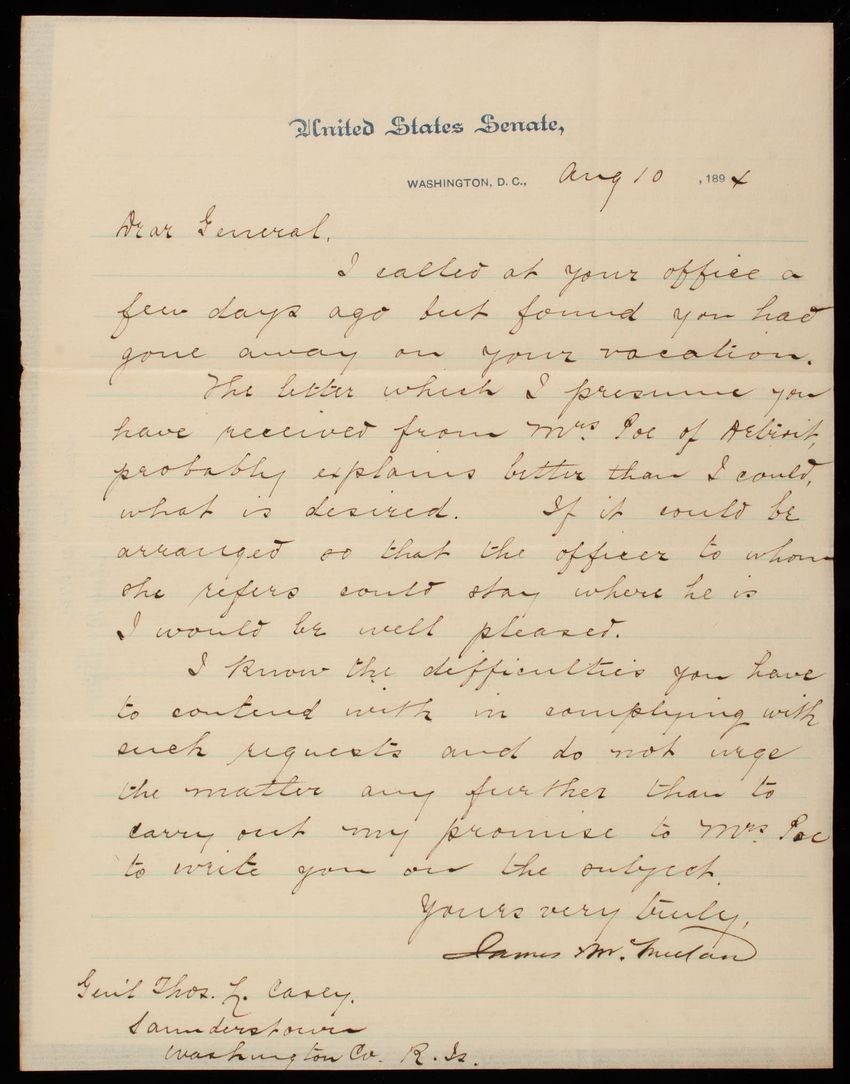 United States Senate,
WASHINGTON, D. C., Aug 10 , 1894
Dear General,
I called at your office a
few days ago but found you had
gone away on your vacation.
The letter which I presume you
have received from Mrs. Poe of Detroit,
probably explains better than I could,
what is desired. If it could be
arranged so that the officer to whom
she refers could stay where he is
I would be well pleased.
I know the difficulties you have
to contend with in complying with
such requests and do not urge
the matter any further than to
carry out my promise to Mrs. Poe
to write you on the subject.
Yours very truly,
James McMillan
Gen'l Thos. L. Casey.
Saunderstown
Washington Co. R. Is.